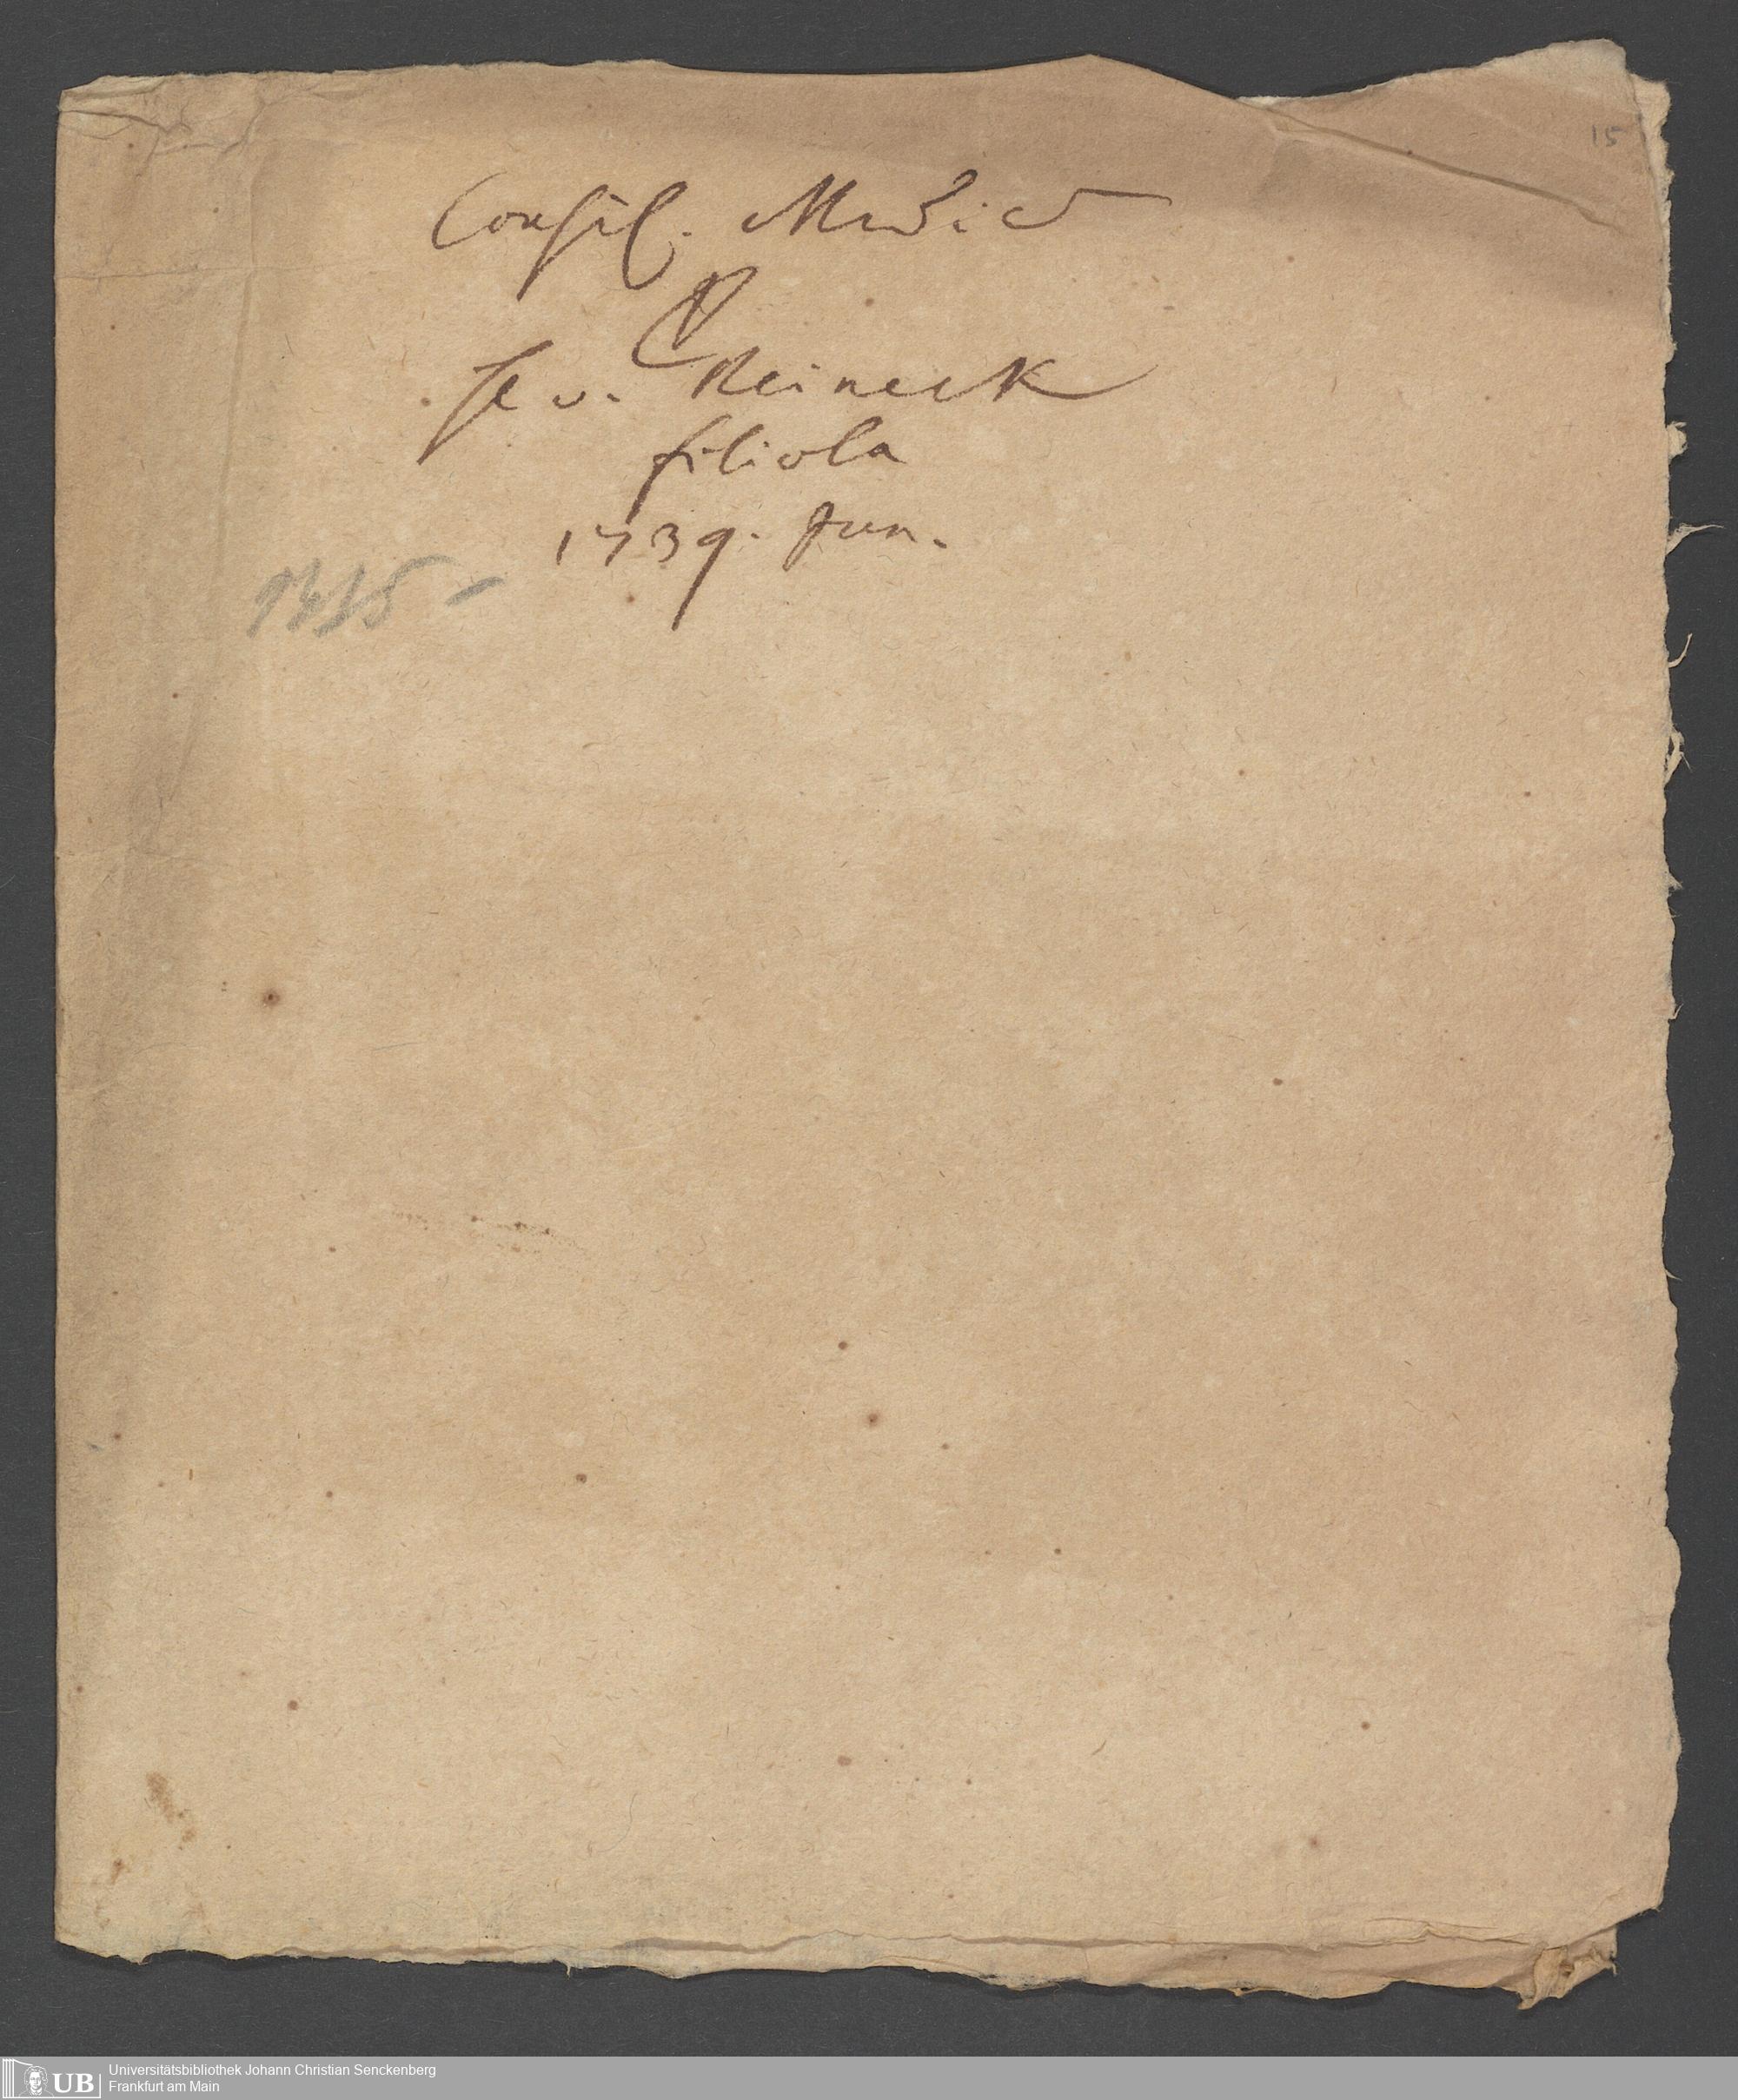 15
Consil. Medic
v. Reineck
filiola
1739. Jun.
Universitätsbibliothek Johann Christian Senckenberg
Frankfurt am Main
UB